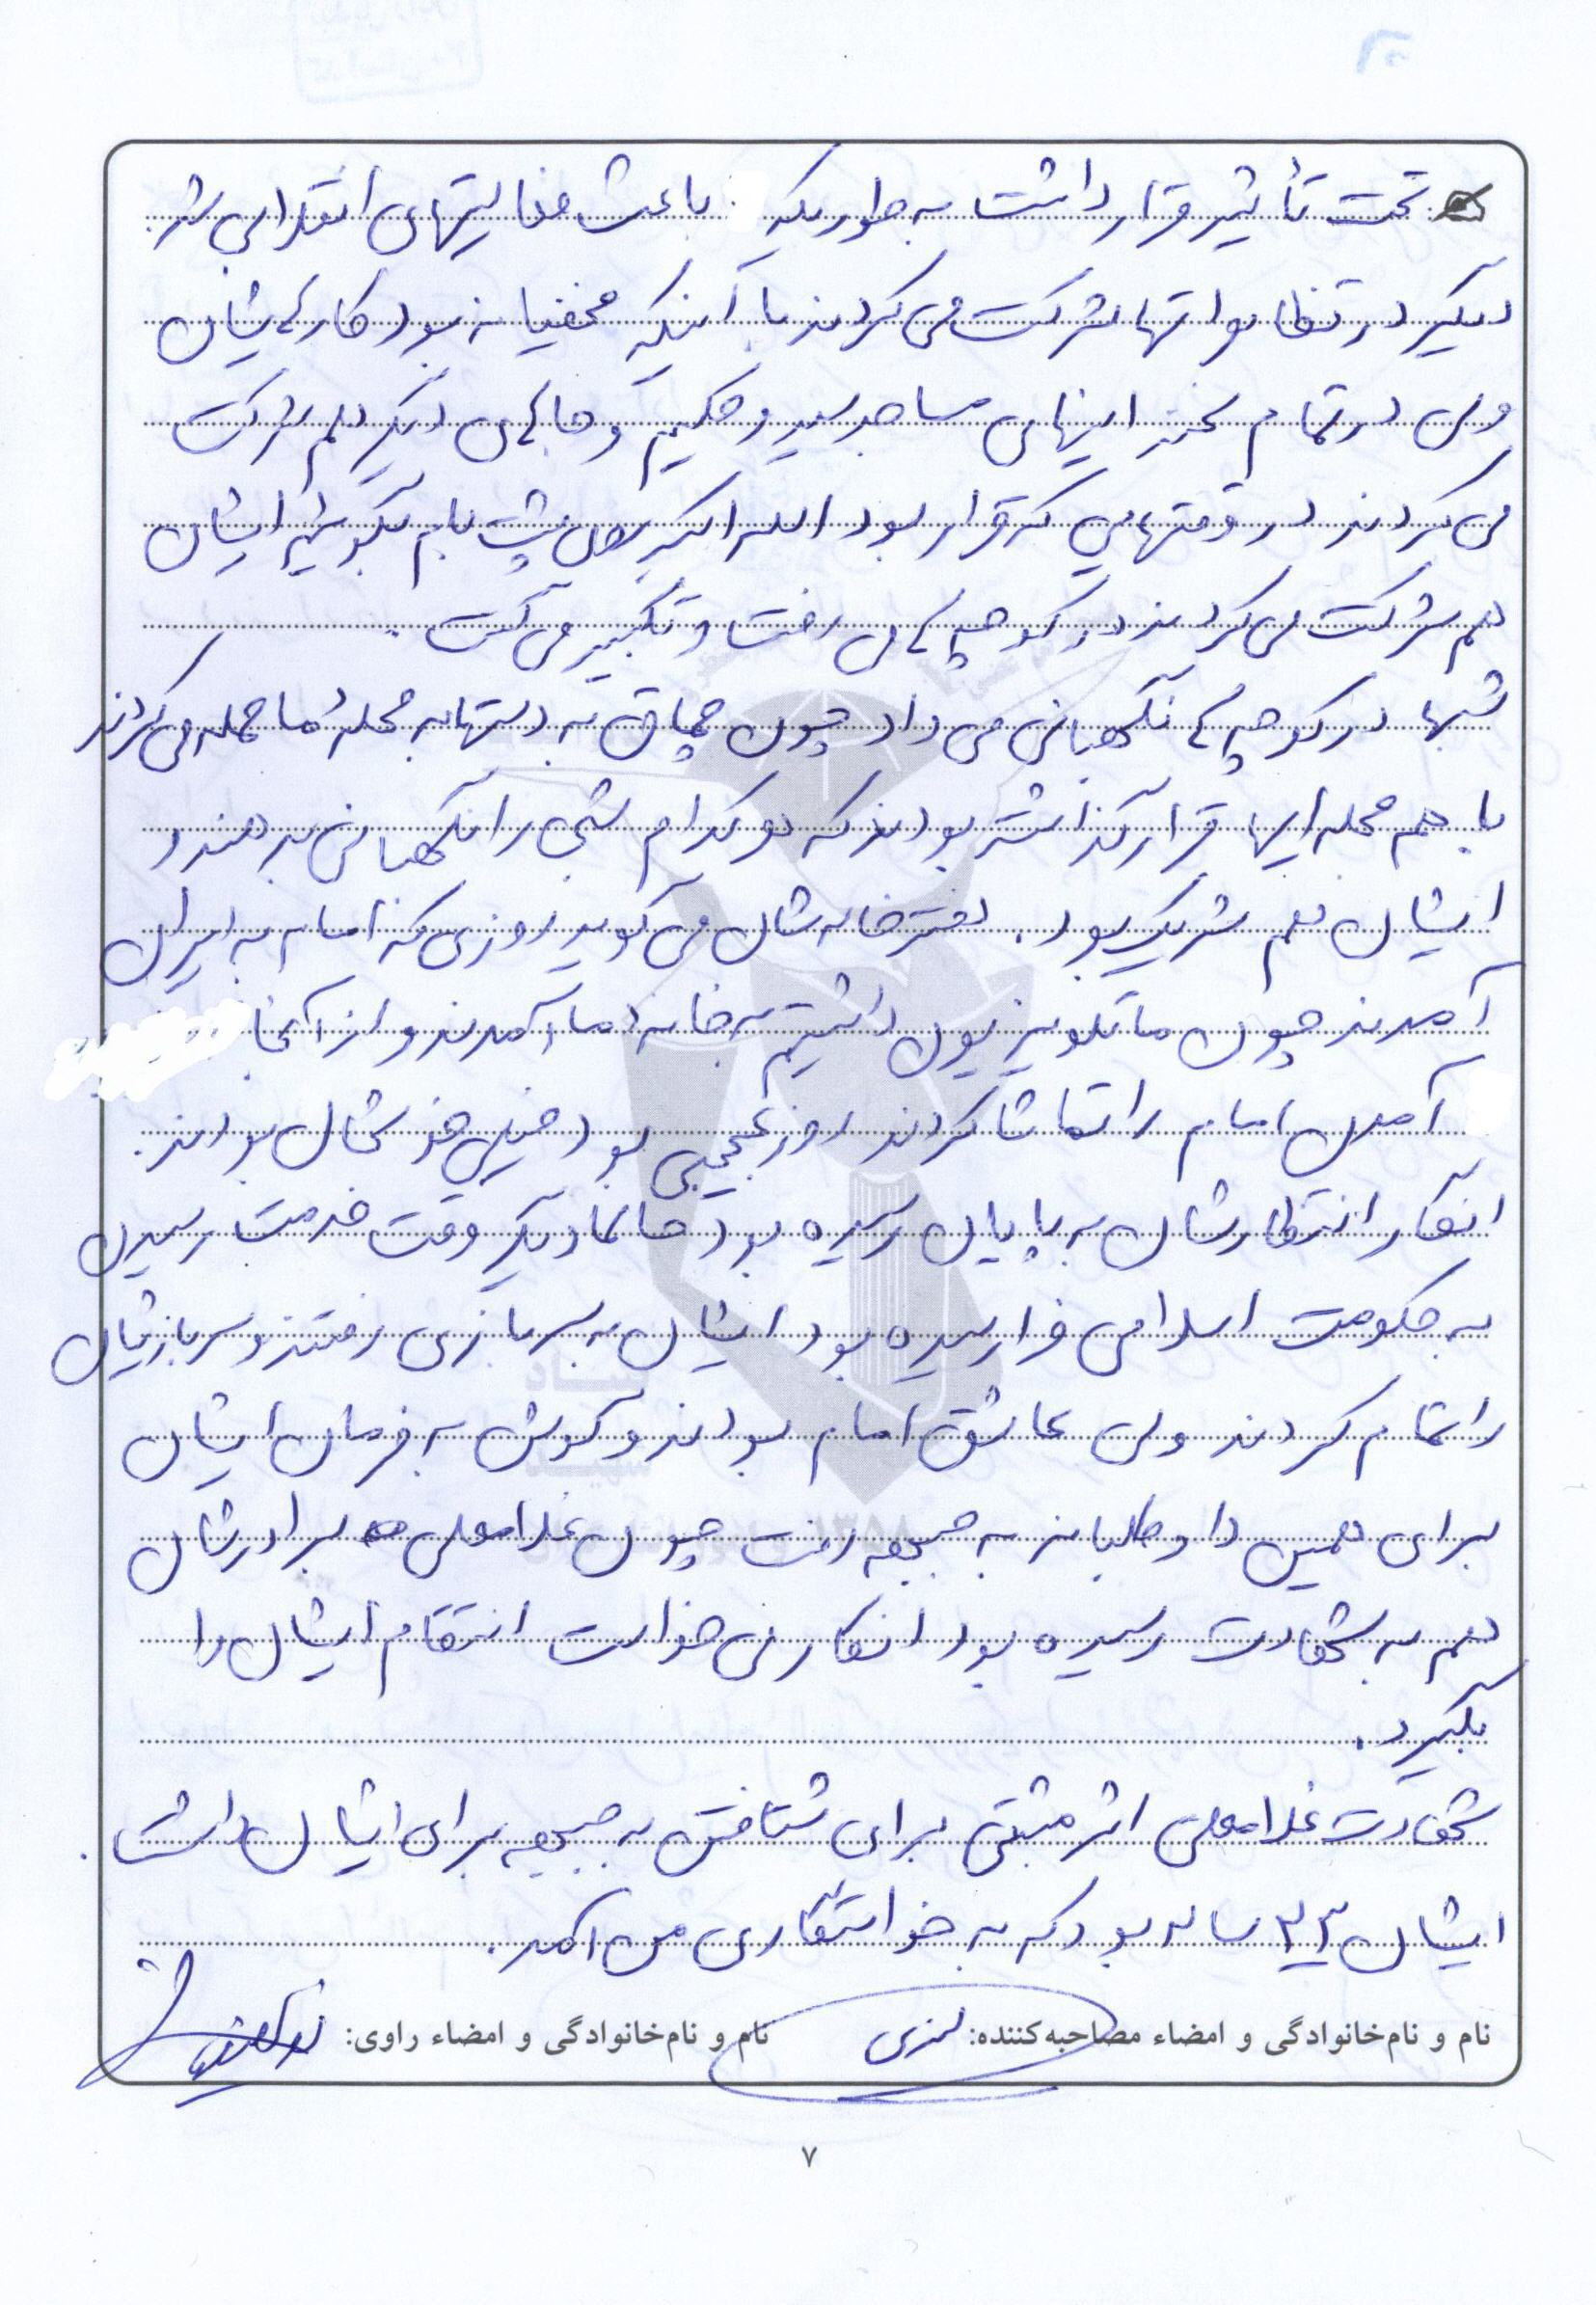 تحت تأثیر قرار داشت به طوریکه باعث فعالیتهای انقلابی شد.
دیگر در تظاهراتها شرکت می کردند با اینکه مخفیانه بود کارهایشان
ولی در تمام سخنرانیهای مساجد سید و حکیم و جاهای دیگر هم شرکت
می کردند در وقتهایی که قرار بود الله اکبر روی پشت بام بگویند ایشان
هم شرکت می کردند در کوچه ها می رفت و تکبیر می گفت.
شبها در کوچه ها نگهبانی می داد چون چماق به دستها به محله ما حمله می کردند
با هم محله ایها قرار گذاشته بودند که هر کدام شبی را نگهبانی بدهند و
ایشان هم شریک بود. دخترخاله شان می گوید روزی که امام به ایران
آمدند چون ما تلویزیون داشتیم به خانه ما آمدند و از آنجا
آمدن امام را تماشا کردند روز عجیبی بود خیلی خوشحال بودند.
انگار انتظارشان به پایان رسیده بود حالا دیگر وقت خدمت رسیدن
به حکومت اسلامی فرا رسیده بود ایشان به سربازی رفتند و سربازیشان
را تمام کردند ولی عاشق امام بودند و گوش به فرمان ایشان
برای همین داوطلبانه به جبهه رفت چون غلامعلی برادرشان
هم به شهادت رسیده بود انگار می خواست انتقام ایشان را
بگیرد.
شهادت غلامعلی اثر مثبتی برای شتافتن به جبهه برای ایشان داشت.
ایشان ۲۳ ساله بود که به خواستگاری من آمد.
نام و نام‌خانوادگی و امضاء مصاحبه‌کننده: نام و نام‌خانوادگی و امضاء راوی:
۷